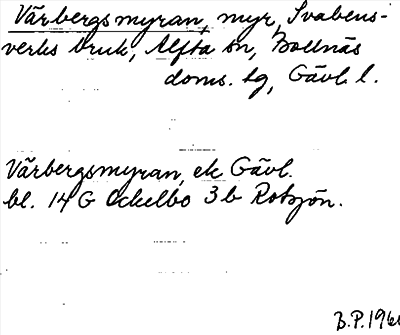 Vårbergsmyran, myr, Svabens-
verks bruk, Alfta sn, Bollnäs
doms. tg, Gävl. l.
Vårbergsmyran, ek Gävl.
bl. 14 G Ockelbo 3b Rotsjön.
B.P. 196